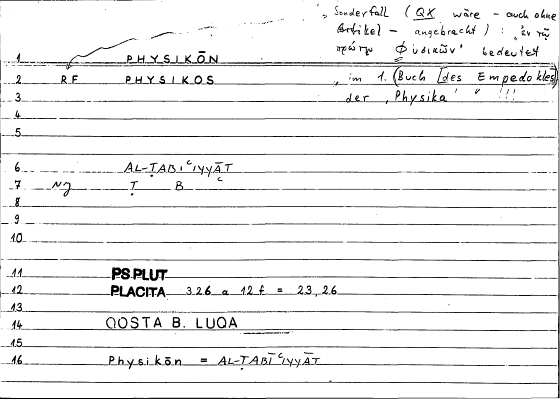 „ Sonderfall (QX wäre – auch ohne
Artikel – angebracht) : ‚ ἐν τῷ
πρώτῳ Φυσικῶν' bedeutet
„ im 1. (Buch [des Empedokles]
der ‚Physika' " !!!
1 PHYSIKŌN
2 RF PHYSIKOS
3
4
5
6 AL-ṬABĪʿIYYĀT
7 NJ Ṭ B ʿ
8
9
10
11 PS PLUT
12 PLACITA 326 a 12 f = 23,26
13
14 QOSTA B. LUQA
15
16 Physikōn = AL-ṬABĪʿIYYĀT